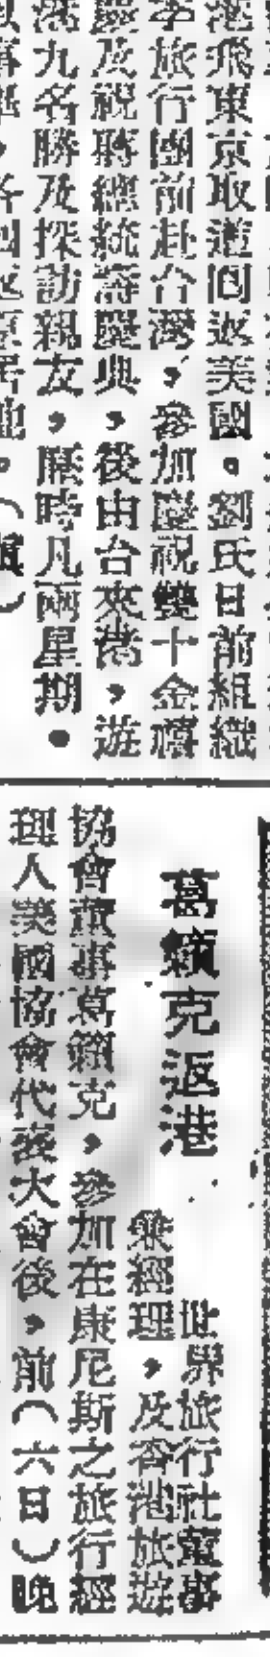 港飛東京取道囘返美國。劉氏日前組織
李旅行團前赴台灣，參加慶祝雙十金禧
慶及祝蔣總統壽慶典，後由台來港，遊
港九名勝及探訪親友，歷時凡兩星期．
葛額克返港
世界旅行社董事
兼經理，及香港旅遊
協會董事葛額克，參加在康尼斯之旅行經
理人美國協會代表大會後，前（六日）晚